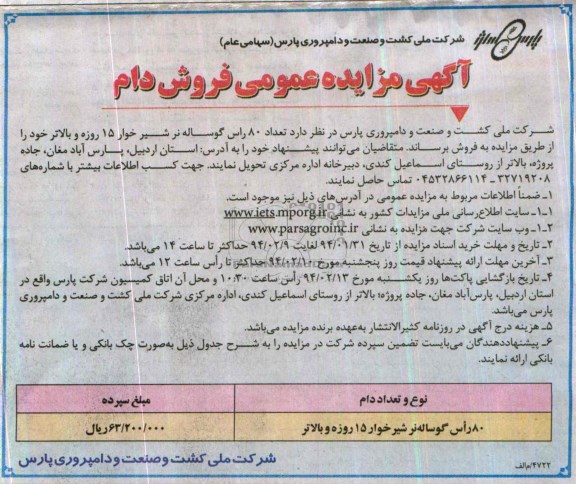 پارس
شرکت ملی کشت و صنعت و دامپروری پارس (سهامی عام)
آگهی مزایده عمومی فروش دام
شرکت ملی کشت و صنعت و دامپروری پارس در نظر دارد تعداد ۸۰ راس گوساله نر شیر خوار ۱۵ روزه و بالاتر خود را
از طریق مزایده به فروش برساند. متقاضیان می‌توانند پیشنهاد خود را به آدرس: استان اردبیل، پارس آباد مغان، جاده
پروژه، بالاتر از روستای اسماعیل کندی، دبیرخانه اداره مرکزی تحویل نمایند. جهت کسب اطلاعات بیشتر با شماره‌های
۳۲۷۱۹۲۰۸ - ۰۴۵۳۲۸۶۶۱۱۴ تماس حاصل نمایند.
۱ـ ضمناً اطلاعات مربوط به مزایده عمومی در آدرس‌های ذیل نیز موجود است.
۱ـ۱ـ سایت اطلاع‌رسانی ملی مزایدات کشور به نشانی www.iets.mporg.ir
۲ـ۱ـ وب سایت شرکت جهت مزایده به نشانی www.parsagroinc.ir
۲ـ تاریخ و مهلت خرید اسناد مزایده از تاریخ ۹۴/۰۱/۳۱ لغایت ۹۴/۰۲/۹ حداکثر تا ساعت ۱۴ می‌باشد.
۳ـ آخرین مهلت ارائه پیشنهاد قیمت روز پنجشنبه مورخ ۹۴/۰۲/۱۰ حداکثر تا رأس ساعت ۱۲ می‌باشد.
۴ـ تاریخ بازگشایی پاکت‌ها روز یکشنبه مورخ ۹۴/۰۲/۱۳ رأس ساعت ۱۰:۳۰ و محل آن اتاق کمیسیون شرکت پارس واقع در
استان اردبیل، پارس‌آباد مغان، جاده پروژه؛ بالاتر از روستای اسماعیل کندی، اداره مرکزی شرکت ملی کشت و صنعت و دامپروری
پارس می‌باشد.
۵ـ هزینه درج آگهی در روزنامه کثیرالانتشار به‌عهده برنده مزایده می‌باشد.
۶ـ پیشنهاددهندگان می‌بایست تضمین سپرده شرکت در مزایده را به شرح جدول ذیل به‌صورت چک بانکی و یا ضمانت نامه
بانکی ارائه نمایند.
نوع و تعداد دام
مبلغ سپرده
۸۰ رأس گوساله‌نر شیر خوار ۱۵ روزه و بالاتر
۶۳/۲۰۰/۰۰۰ ریال
شرکت ملی کشت و صنعت و دامپروری پارس
۴۷۲۲/م‌الف